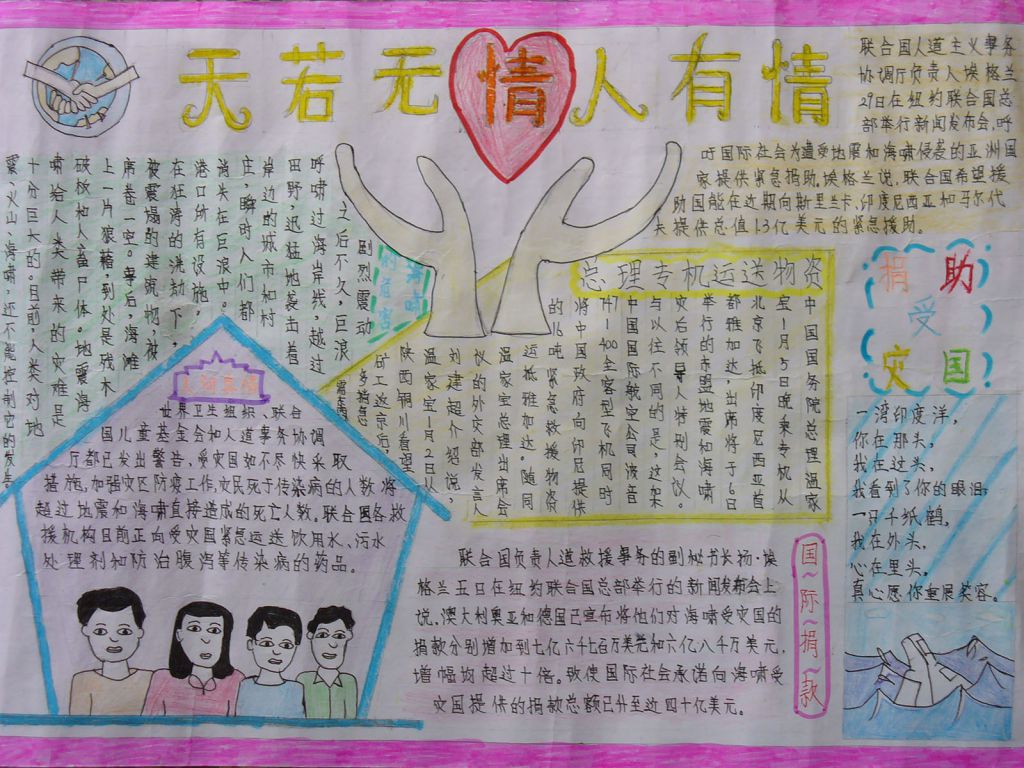 天若无情人有情
联合国人道主义事务
协调厅负责人埃格兰
29日在纽约联合国总
部举行新闻发布会,呼
吁国际社会为遭受地震和海啸侵袭的亚洲国
家提供紧急捐助。埃格兰说,联合国希望援
助国能在近期向斯里兰卡,印度尼西亚和马尔代
夫提供总值1.3亿美元的紧急援助。
海啸
的危害
剧烈震动
之后不久,巨浪
呼啸过海岸线,越过
田野,迅猛地袭击着
岸边的城市和村
庄,瞬时人们都
消失在巨浪中。
港口所有设施,
在狂涛的洗劫下,
被震塌的建筑物,被
席卷一空。事后,海滩
上一片狼藉,到处是残木
破板和人畜尸体。地震海
啸给人类带来的灾难是
十分巨大的。目前,人类对地
震、火山、海啸还不能控制它的发生
总理专机运送物资
中国国务院总理温家
宝1月5日晚乘专机从
北京飞抵印度尼西亚首
都雅加达,出席将于6日
举行的东盟地震和海啸
灾后领导人特别会议。
与以往不同的是,这架
中国国际航空公司波音
747-400全客型飞机同时
将中国政府向印尼提供
的16吨紧急救援物资
运抵雅加达。随同
温家宝总理出席会
议的外交部发言人
刘建超介绍说,
温家宝1月2日从
陕西铜川看望
矿工返京后,
捐助
受
灾国
一湾印度洋,
你在那头,
我在这头,
我看到了你的眼泪;
一只千纸鹤,
我在外头,
心在里头,
真心愿你重展笑容。
世界卫生组织、联合
国儿童基金会和人道事务协调
厅都已发出警告,受灾国如不尽快采取
措施,加强灾区防疫工作,灾民死于传染病的人数将
超过地震和海啸直接造成的死亡人数。联合国各救
援机构日前正向受灾国紧急运送饮用水、污水
处理剂和防治腹泻等传染病的药品。
国~际~捐~款
联合国负责人道救援事务的副秘书长扬·埃
格兰五日在纽约联合国总部举行的新闻发布会上
说,澳大利亚和德国已宣布将他们对海啸受灾国的
捐款分别增加到七亿六千七百万美元和六亿八千万美元,
增幅均超过十倍。致使国际社会承诺向海啸受
灾国提供的捐款总额已升至近四十亿美元。